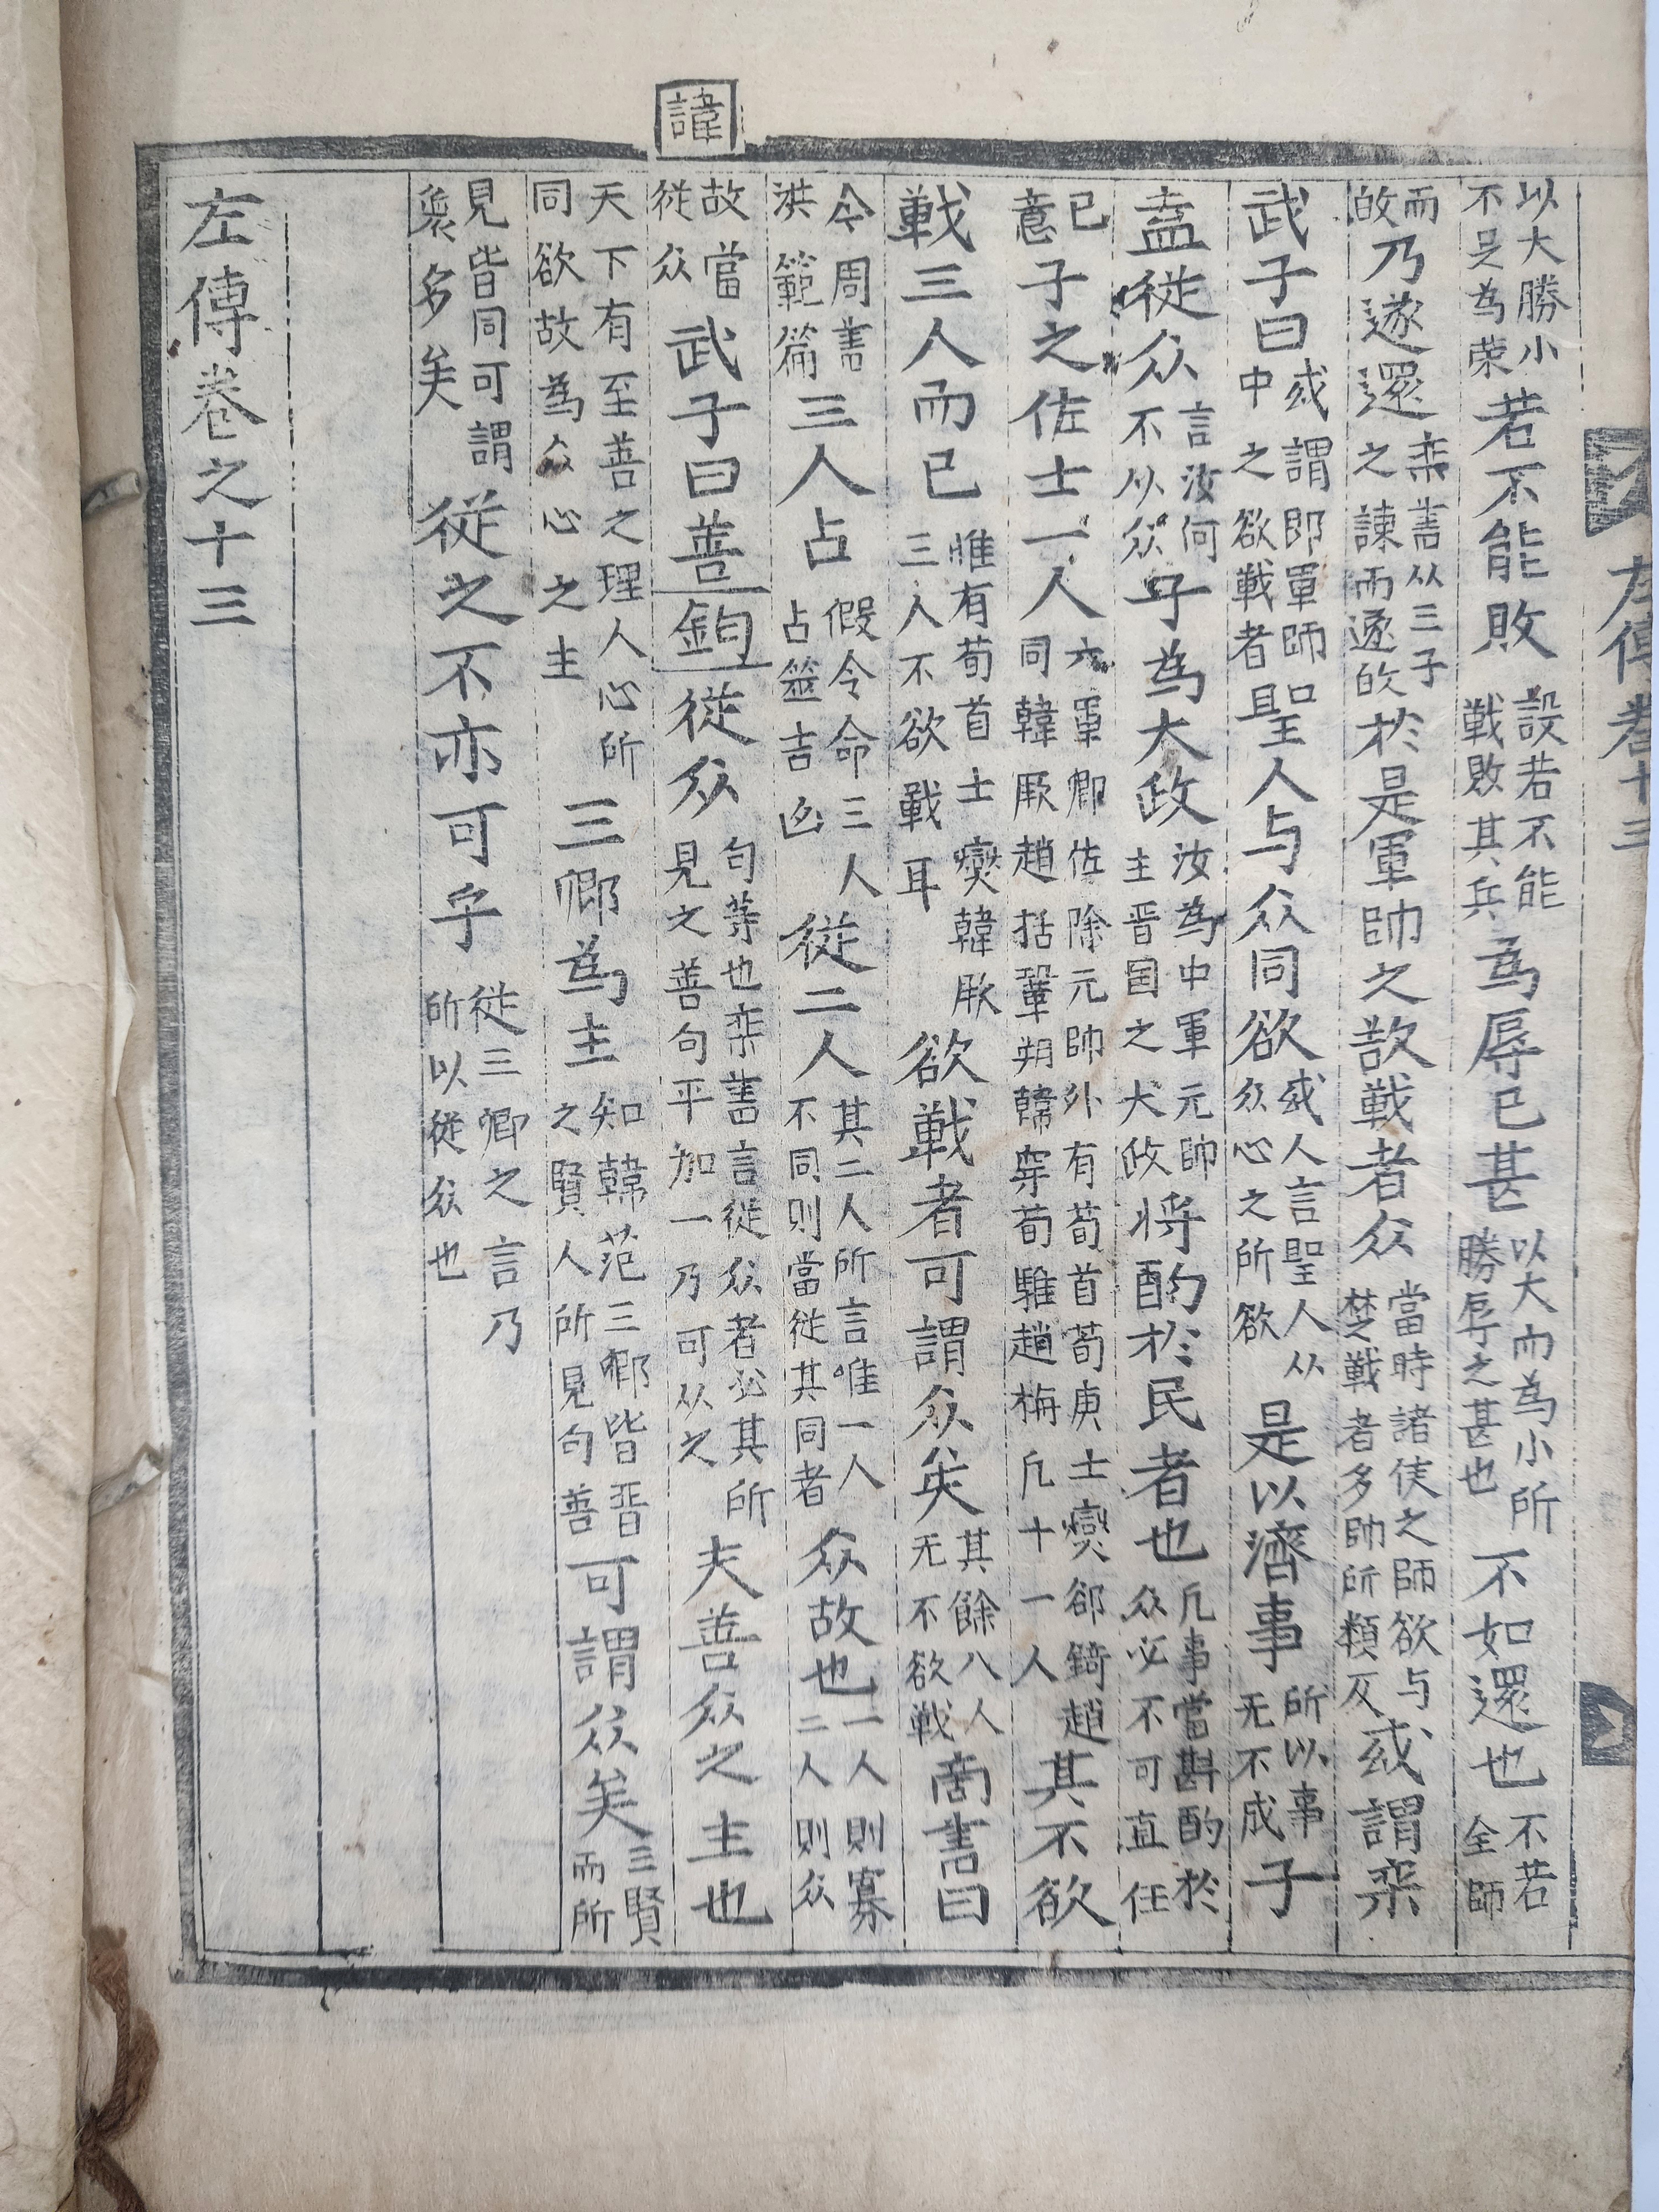 左傳卷十三
以大勝小不足為荣若不能敗設若不能戦敗其兵為辱已甚以大而為小所勝辱之甚也不如還也不若全師
而皈乃遂還栾書从三子之諫而遂皈於是軍帥之欲戦者众當時諸侯之師欲与楚戦者多帥所類仄或謂栾
武子曰或謂即軍師中之欲戰者聖人与众同欲或人言聖人从众心之所欲是以濟事所以事无不成子
盍従众言汝何不从众子為大政汝為中軍元帥主晋国之大政将酌於民者也凡事當斟酌於众必不可直任
已意子之佐士一人六軍卿佐除元帥外有荀首荀庚士燮郤錡趙同韓厥趙括鞏朔韓穿荀騅趙栴凡十一人其不欲
戦三人而已惟有荀首士燮韓厥三人不欲戰耳欲戰者可謂众矣其餘八人无不欲戦商書曰
諱
今周書洪範篇三人占假令命三人占筮吉凶従二人其二人所言唯一人不同則當従其同者众故也一人則寡二人則众
故當従众武子曰善鈞従众句等也栾書言従众者必其所見之善句平加一乃可从之夫善众之主也
天下有至善之理人心所同欲故為众心之主三卿為主知韓范三卿皆晋之賢人所見句善可謂众矣三賢而所
見皆同可謂衆多矣従之不亦可乎従三卿之言乃所以従众也
左傳卷之十三